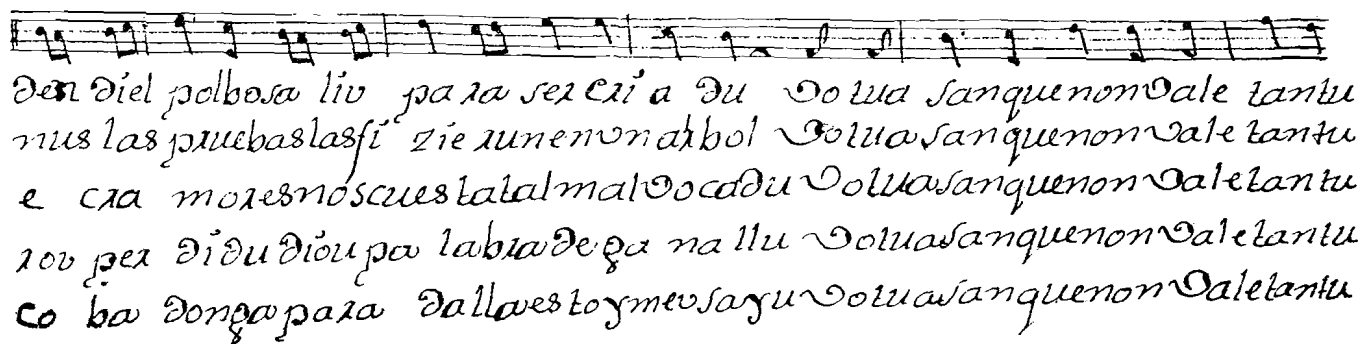 den diel polbosa liu para ser cri a du Votua sanquenon Vale tantu
nus las pruebas las fi zie runen un arbol Votua sanquenon Vale tantu
e cra mores nos cues ta tal mal Vocadu Votua sanquenon Vale tantu
rou per di du diou pa labra de ga na llu Votua sanquenon Vale tantu
co ba donga para dalla es toy meu sayu Votua sanquenon Vale tantu